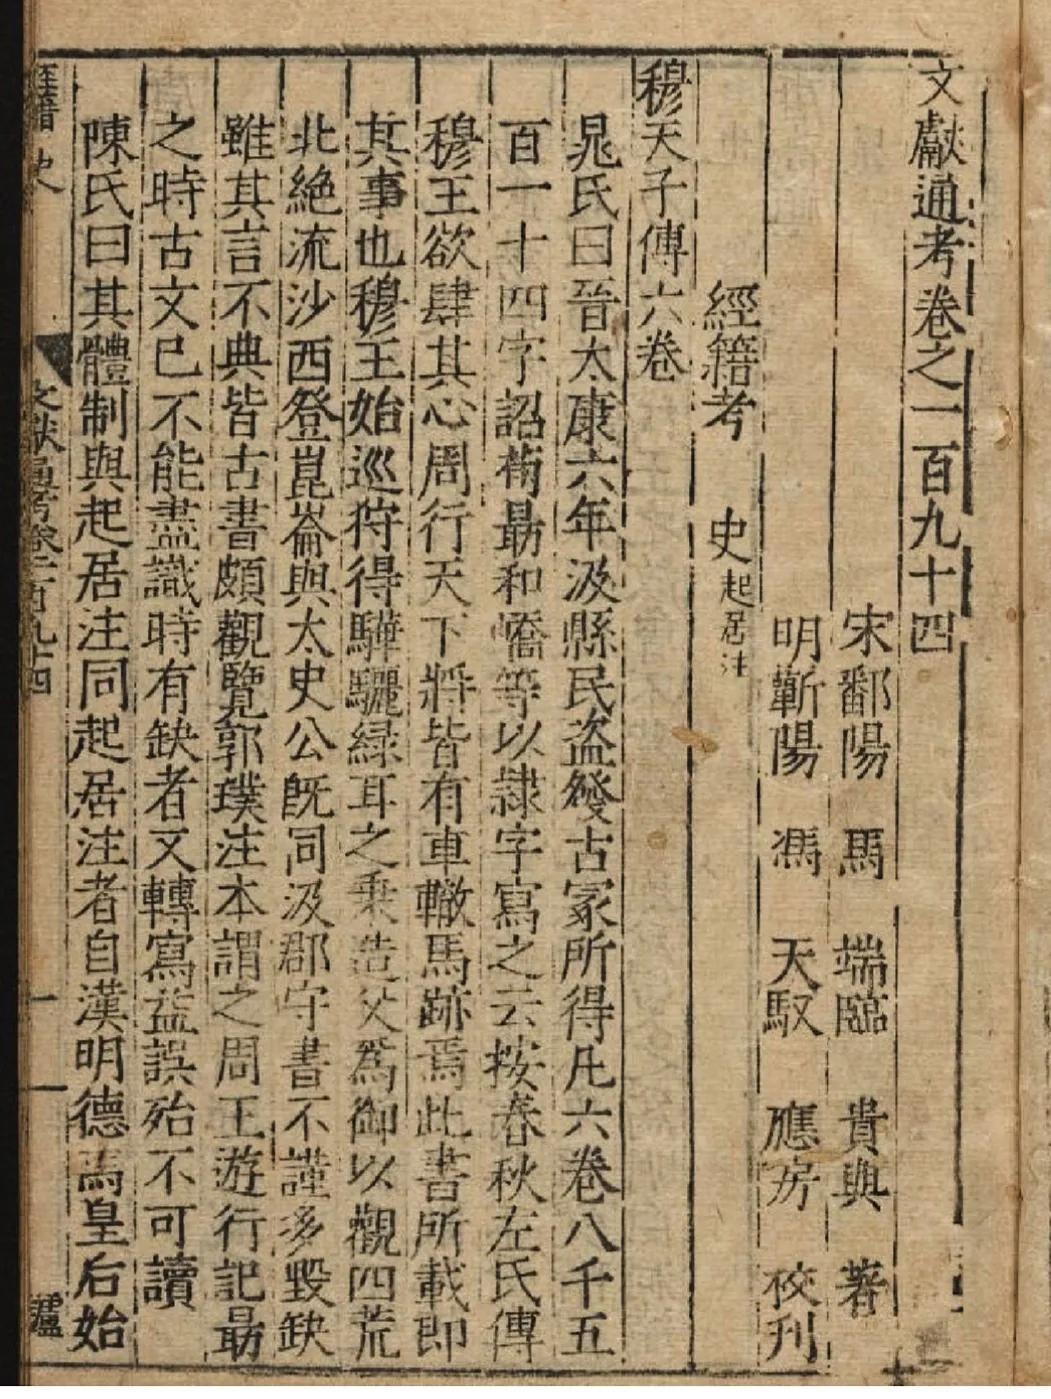 文獻通考卷之一百九十四
宋鄱陽 馬 端臨 貴與 著
明蘄陽 馮 天馭 應房 校刊
經籍考 史起居注
穆天子傳六卷
晁氏曰晉太康六年汲縣民盜發古冢所得凡六卷八千五
百一十四字詔荀勗和嶠等以隸字寫之云按春秋左氏傳
穆王欲肆其心周行天下將皆有車轍馬跡焉此書所載即
其事也穆王始巡狩得驊騮綠耳之乗造父爲御以觀四荒
北絶流沙西登崑崙與太史公旣同汲郡守書不謹多毀缺
雖其言不典皆古書頗觀覽郭璞注本謂之周王遊行記勗
之時古文已不能盡識時有缺者又轉寫益誤殆不可讀
陳氏曰其體制與起居注同起居注者自漢明德馬皇后始
經籍史
文獻通考卷一百九十四
一